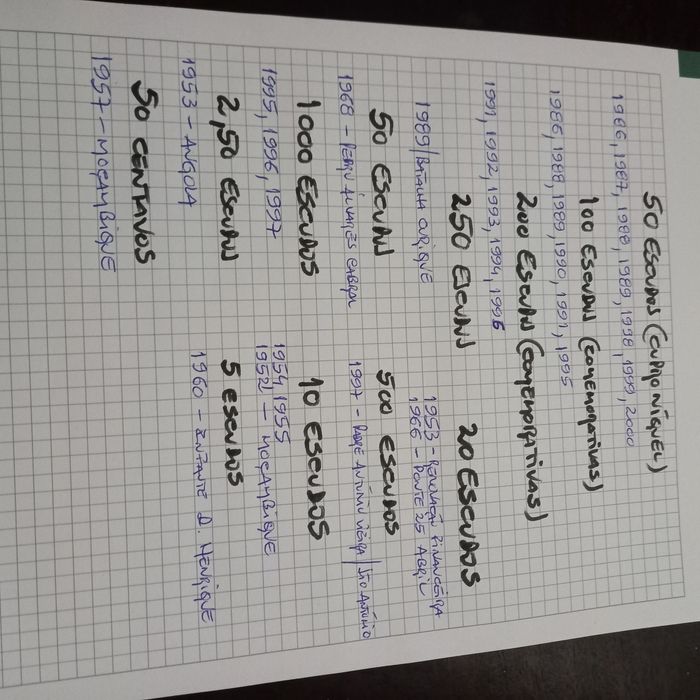 50 ESCUDOS (CUPRO NÍQUEL)
1986, 1987, 1988, 1989, 1998, 1999, 2000
100 ESCUDOS (COMEMORATIVAS)
1986, 1988, 1989, 1990, 1991, 1995
200 ESCUDOS (COMEMORATIVAS)
1991, 1992, 1993, 1994, 1995
250 ESCUDOS
1989/BATALHA OURIQUE
20 ESCUDOS
1953 - RENOVAÇÃO FINANCEIRA
1966 - PONTE 25 ABRIL
50 ESCUDOS
1968 - PEDRO ÁLVARES CABRAL
500 ESCUDOS
1997 - PADRE ANTÓNIO VIEIRA / SÃO ANTÓNIO
1000 ESCUDOS
1995, 1996, 1997
10 ESCUDOS
1954, 1955
1952 - MOÇAMBIQUE
2,50 ESCUDOS
1953 - ANGOLA
5 ESCUDOS
1960 - INFANTE D. HENRIQUE
50 CENTAVOS
1957 - MOÇAMBIQUE